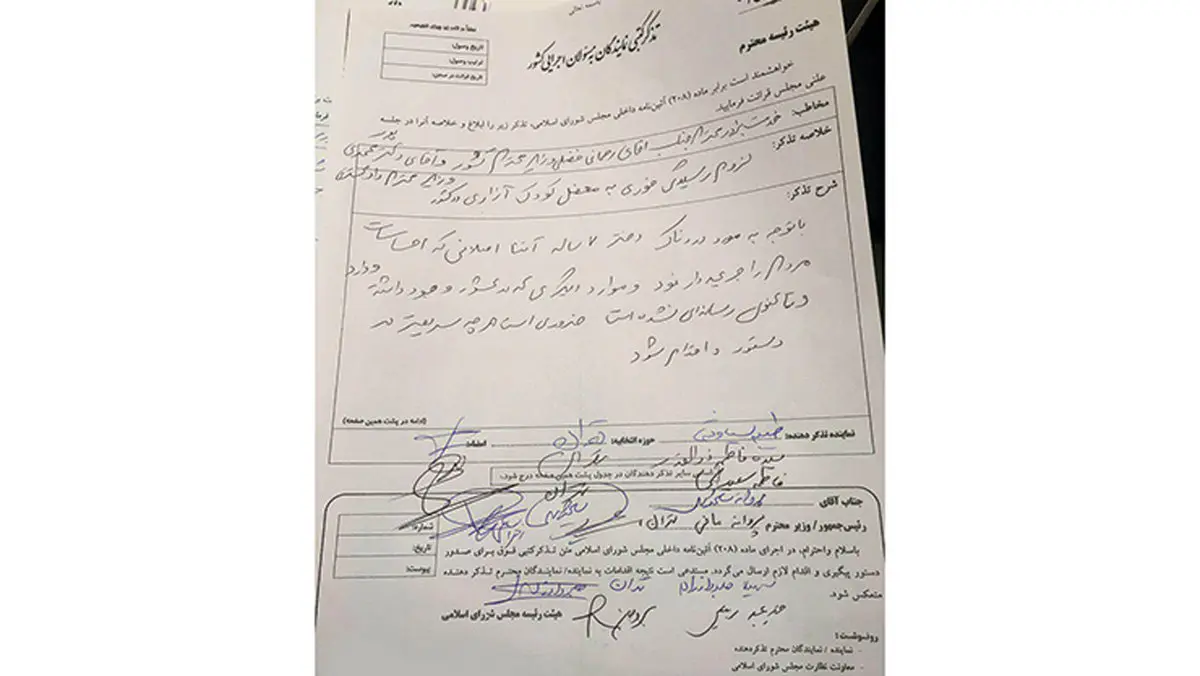 باسمه تعالی
تذکر کتبی نمایندگان به مسئولان اجرایی کشور
تاریخ وصول:
ترتیب وصول:
تاریخ قرائت در صحن:
هیئت رئیسه محترم
خواهشمند است برابر ماده (۲۰۸) آئین‌نامه داخلی مجلس شورای اسلامی، تذکر زیر را ابلاغ و خلاصه آنرا در جلسه
علنی مجلس قرائت فرمایید.
مخاطب: خدمت برادر محترم جناب آقای رحمانی فضلی وزیر محترم کشور و آقای دکتر
وزیر محترم دادگستری
خلاصه تذکر: لزوم رسیدگی فوری به معضل کودک آزاری در کشور
شرح تذکر:
باتوجه به مورد دردناک دختر ۷ ساله آتنا اصلانی که احساسات
مردم را جریحه دار نمود و موارد دیگری که در کشور وجود داشته و دارد
و تاکنون رسانه‌ای نشده است ضروری است هر چه سریعتر در
دستور و اقدام شود
(ادامه در پشت همین صفحه)
نماینده تذکر دهنده: طیبه سیاوشی حوزه انتخابیه: تهران امضاء:
سیده فاطمه ذوالقدر تهران
فاطمه سعیدی تهران
اسامی سایر تذکر دهندگان در جدول پشت همین صفحه درج شود.
جناب آقای
پروانه سلحشوری
رئیس‌جمهور / وزیر محترم
پروانه مافی تهران
شماره:
تاریخ:
پیوست:
باسلام واحترام، در اجرای ماده (۲۰۸) آئین‌نامه داخلی مجلس شورای اسلامی متن تذکر کتبی فوق برای صدور
دستور پیگیری و اقدام لازم ارسال می‌گردد. مستدعی است نتیجه اقدامات به نماینده/ نمایندگان محترم تذکر دهنده
منعکس شود.
تهران
هیئت رئیسه مجلس شورای اسلامی
رونوشت:
- نماینده / نمایندگان محترم تذکردهنده
- معاونت نظارت مجلس شورای اسلامی